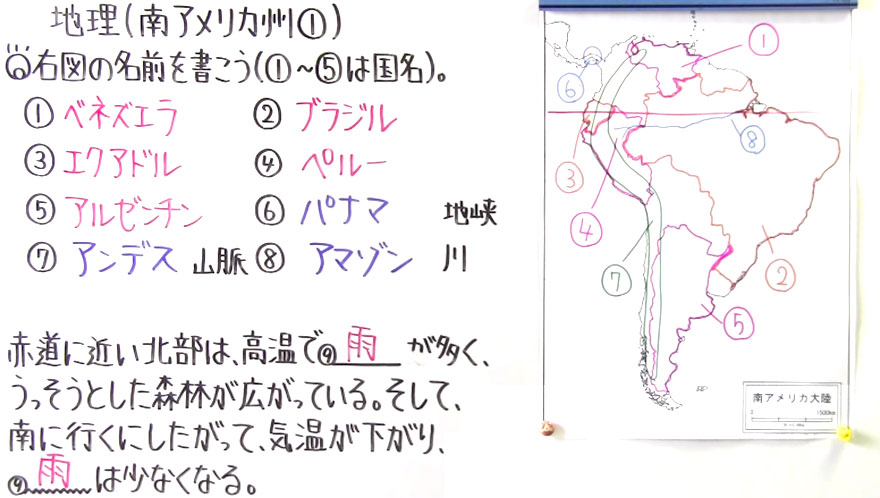 地理(南アメリカ州①)
右図の名前を書こう(①~⑤は国名)。
① ベネズエラ ② ブラジル
③ エクアドル ④ ペルー
⑤ アルゼンチン ⑥ パナマ 地峡
⑦ アンデス 山脈 ⑧ アマゾン 川
赤道に近い北部は、高温で⑨ 雨 が多く、
うっそうとした森林が広がっている。そして、
南に行くにしたがって、気温が下がり、
⑨ 雨 は少なくなる。
①
⑥
⑧
③
④
⑦
②
⑤
南アメリカ大陸
0 1500km